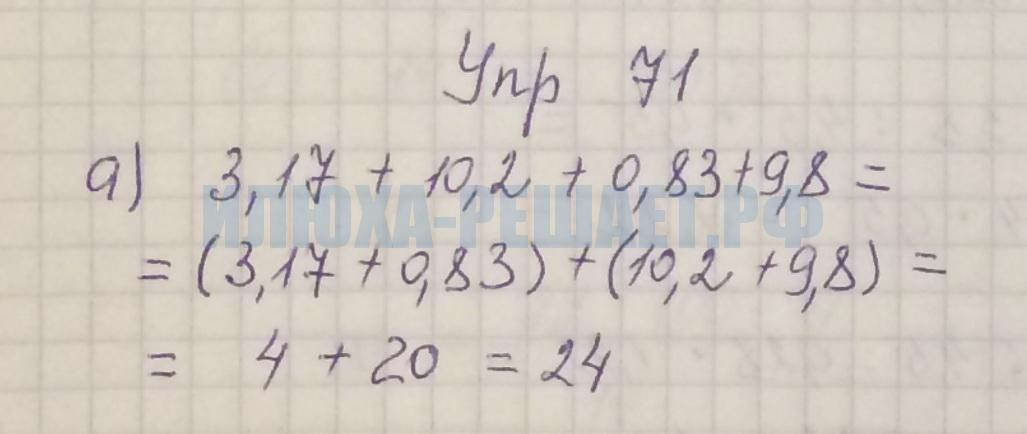 Упр 71
а) 3,17 + 10,2 + 0,83 + 9,8 =
ИЛЮХА-РЕШАЕТ.РФ
= (3,17 + 0,83) + (10,2 + 9,8) =
= 4 + 20 = 24